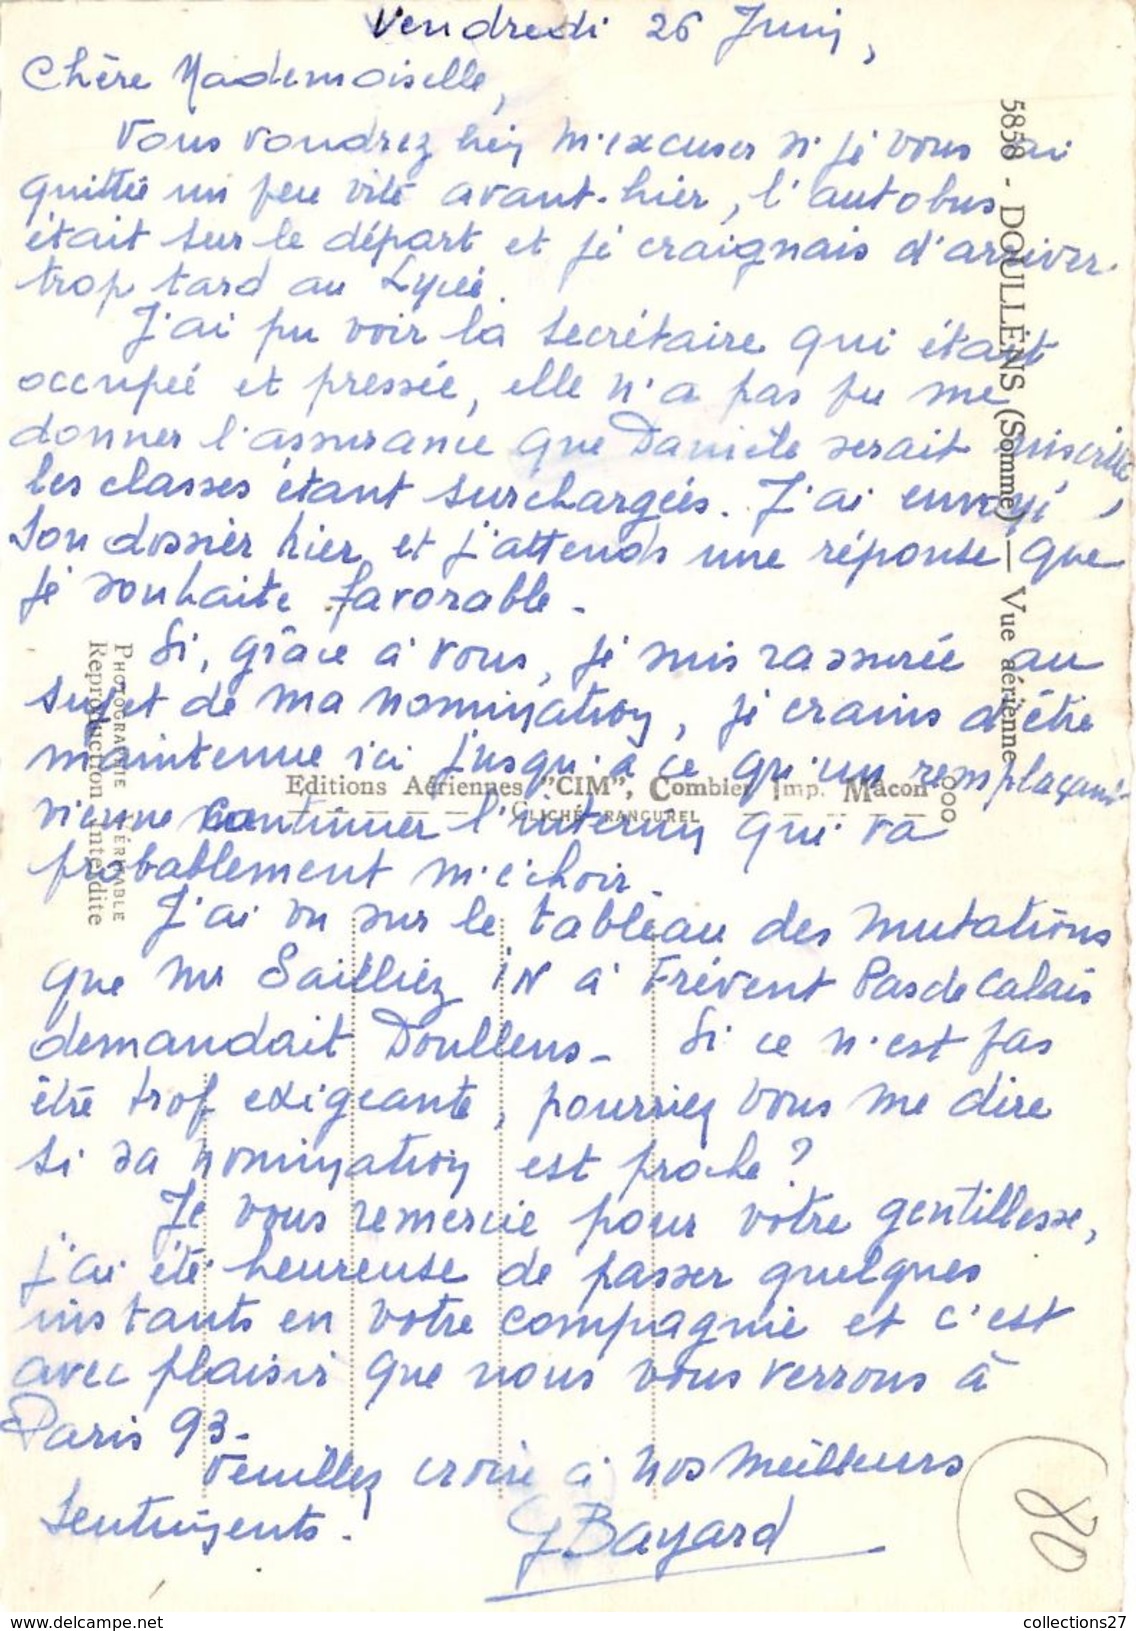 Vendredi 26 Juin,
Chère Mademoiselle,
Vous voudrez bien m'excuser si je vous ai
quittée un peu vite avant-hier, l'autobus
était sur le départ et je craignais d'arriver
trop tard au Lycée.
J'ai pu voir la secrétaire qui étant
occupée et pressée, elle n'a pas pu me
donner l'assurance que Danièle serait inscrite,
les classes étant surchargées. J'ai envoyé
son dossier hier et j'attends une réponse que
je souhaite favorable.
Si, grâce à vous, je suis rassurée au
sujet de ma nomination, je crains d'être
maintenue ici jusqu'à ce qu'un remplaçant
vienne continuer l'interim qui va
probablement m'échoir.
J'ai vu sur le tableau des mutations
que Mr Sailliez IN à Frévent Pas de Calais
demandait Doullens - Si ce n'est pas
être trop exigeante, pourriez vous me dire
si sa nomination est proche?
Je vous remercie pour votre gentillesse,
j'ai été heureuse de passer quelques
instants en votre compagnie et c'est
avec plaisir que nous vous verrons à
Paris 93.
Veuillez croire à nos meilleurs
sentiments.
G Bayard
5858 - DOULLENS (Somme) — Vue aérienne
Editions Aériennes "CIM", Combier Imp. Mâcon
CLICHÉ RANCUREL
PHOTOGRAPHIE VÉRITABLE
Reproduction Interdite
80
collections27